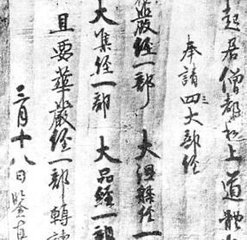 起居僧都和上道體
奉請四大部經
嚴經一部　大涅槃經一
大集經一部　大品經一部
且要華嚴經一部轉讀
三月十八日鑒真